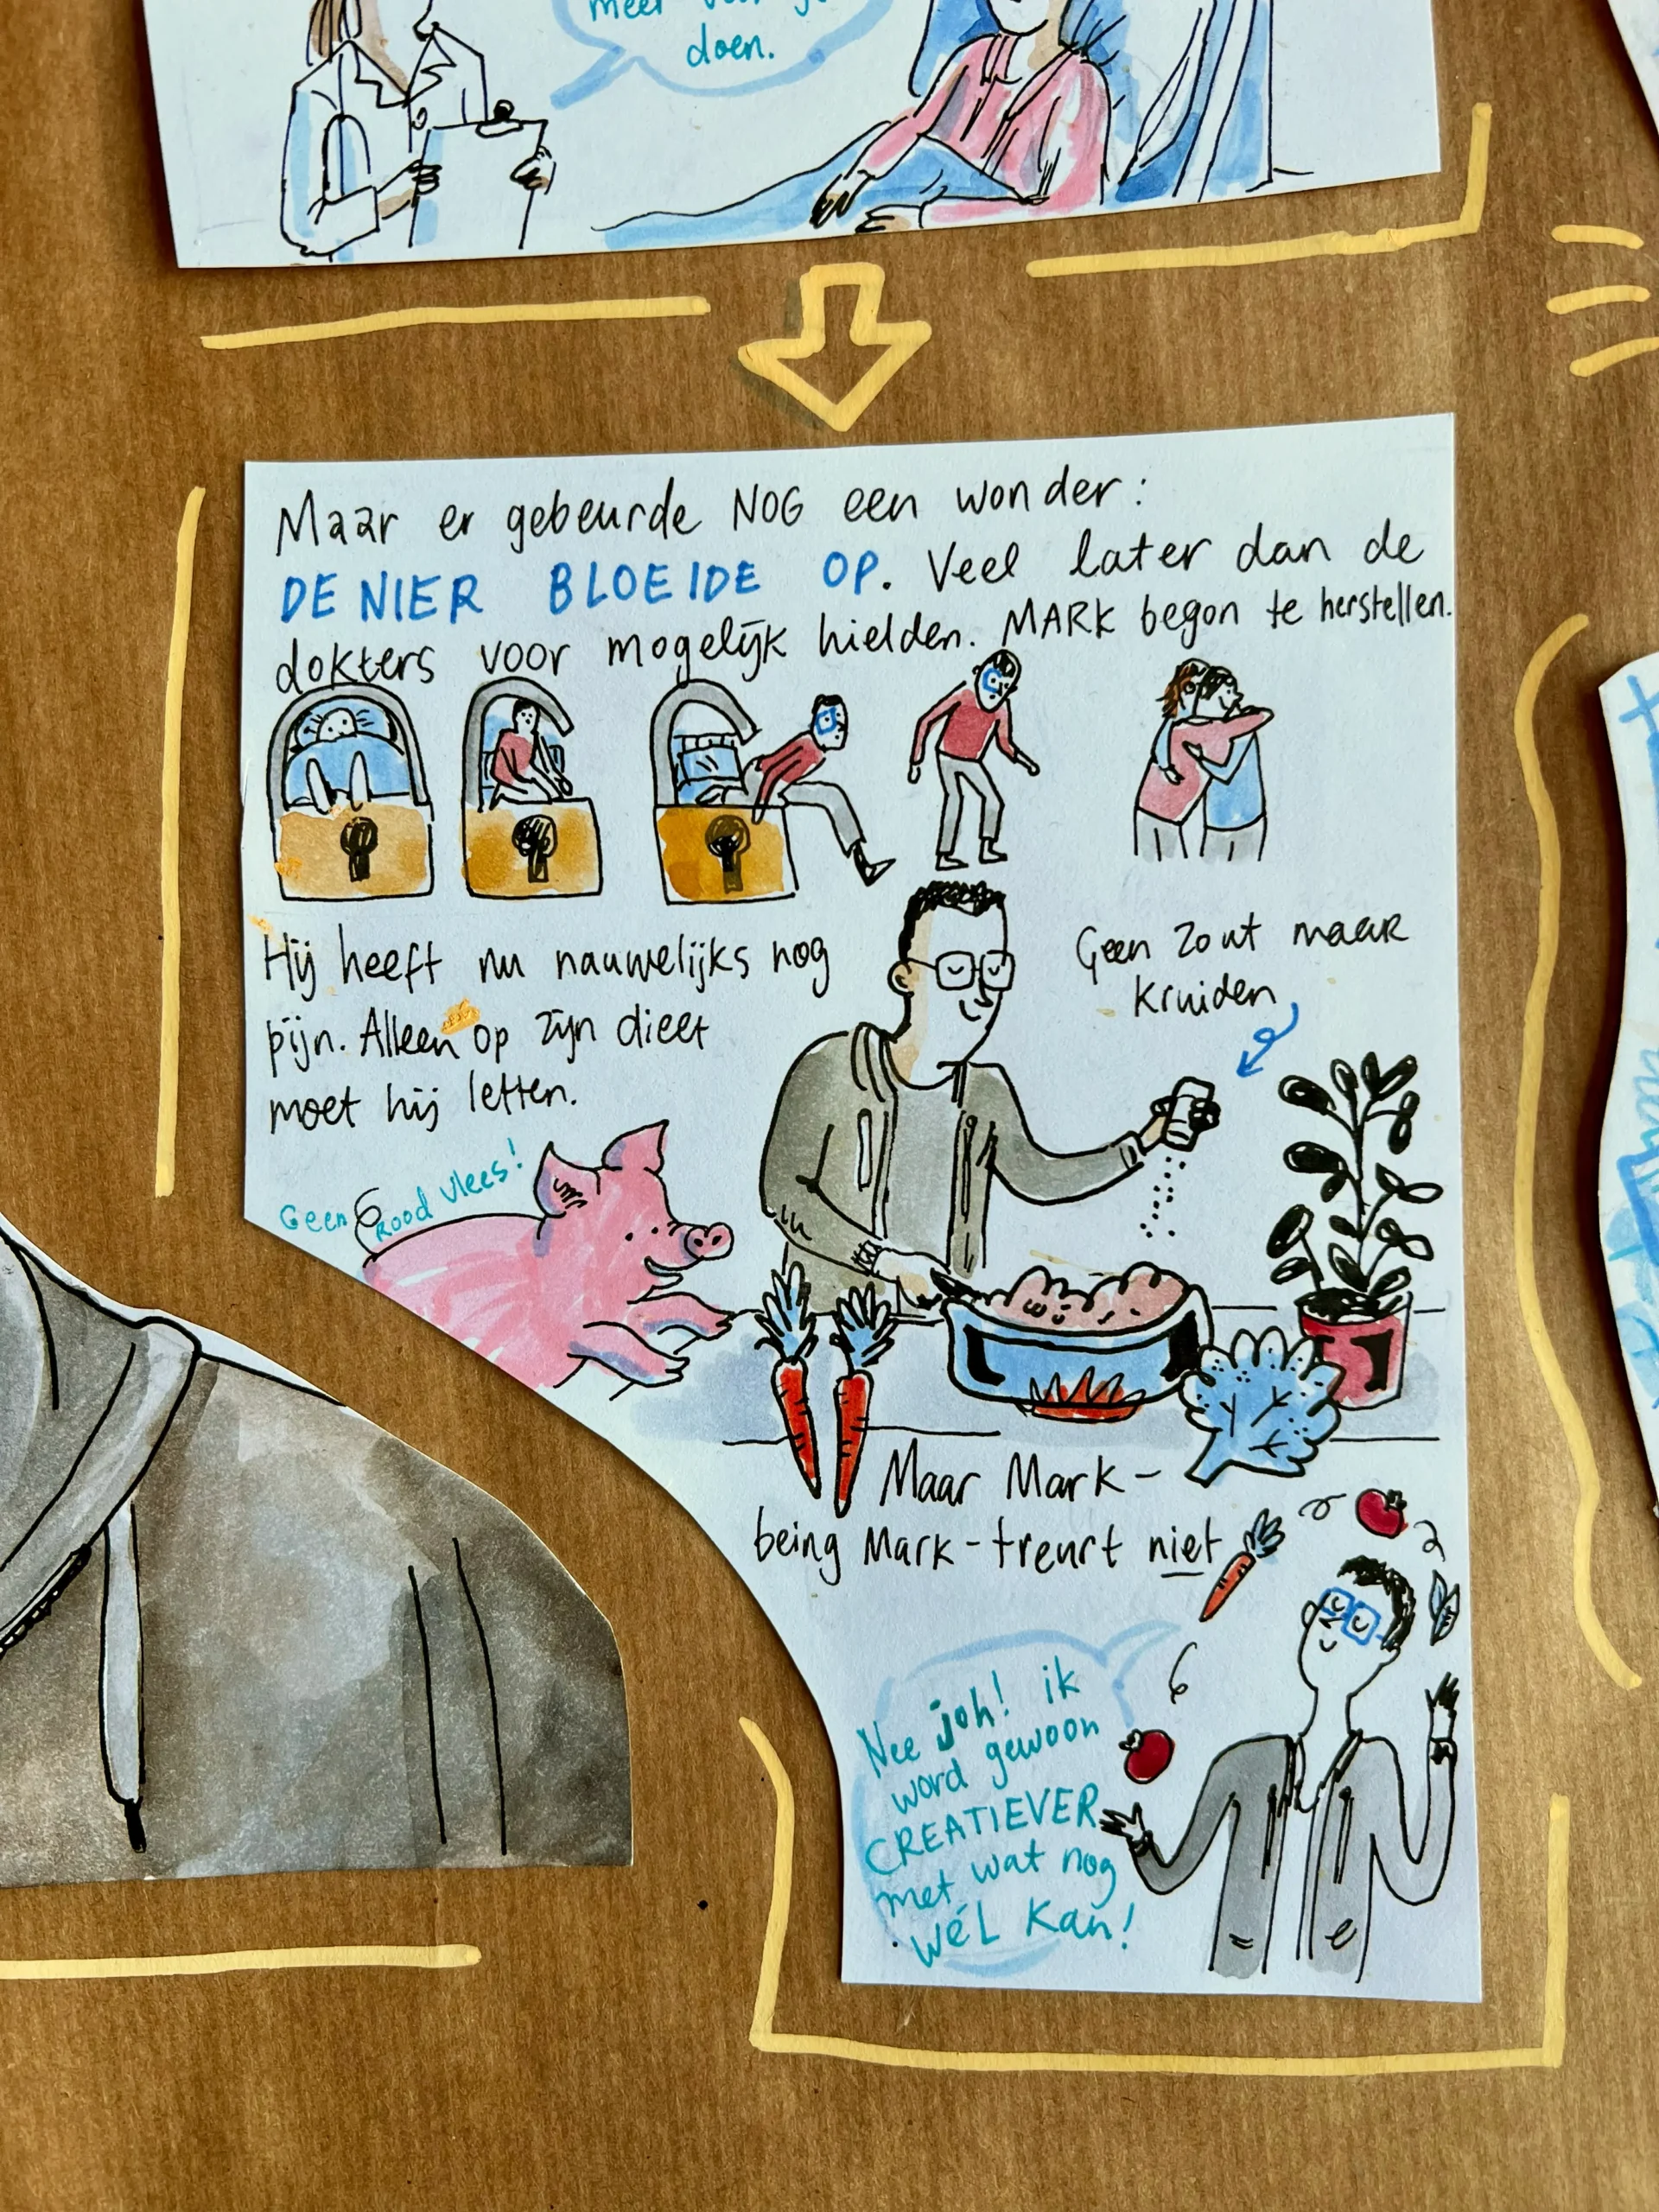 meer voor je
doen.
Maar er gebeurde NOG een wonder:
DE NIER BLOEIDE OP. Veel later dan de
dokters voor mogelijk hielden. MARK begon te herstellen.
Hij heeft nu nauwelijks nog
pijn. Alleen op zijn dieet
moet hij letten.
Geen zout maar
kruiden
Geen rood vlees!
Maar Mark-
being Mark-treurt niet
Nee joh! ik
word gewoon
CREATIEVER
met wat nog
WÉL kan!